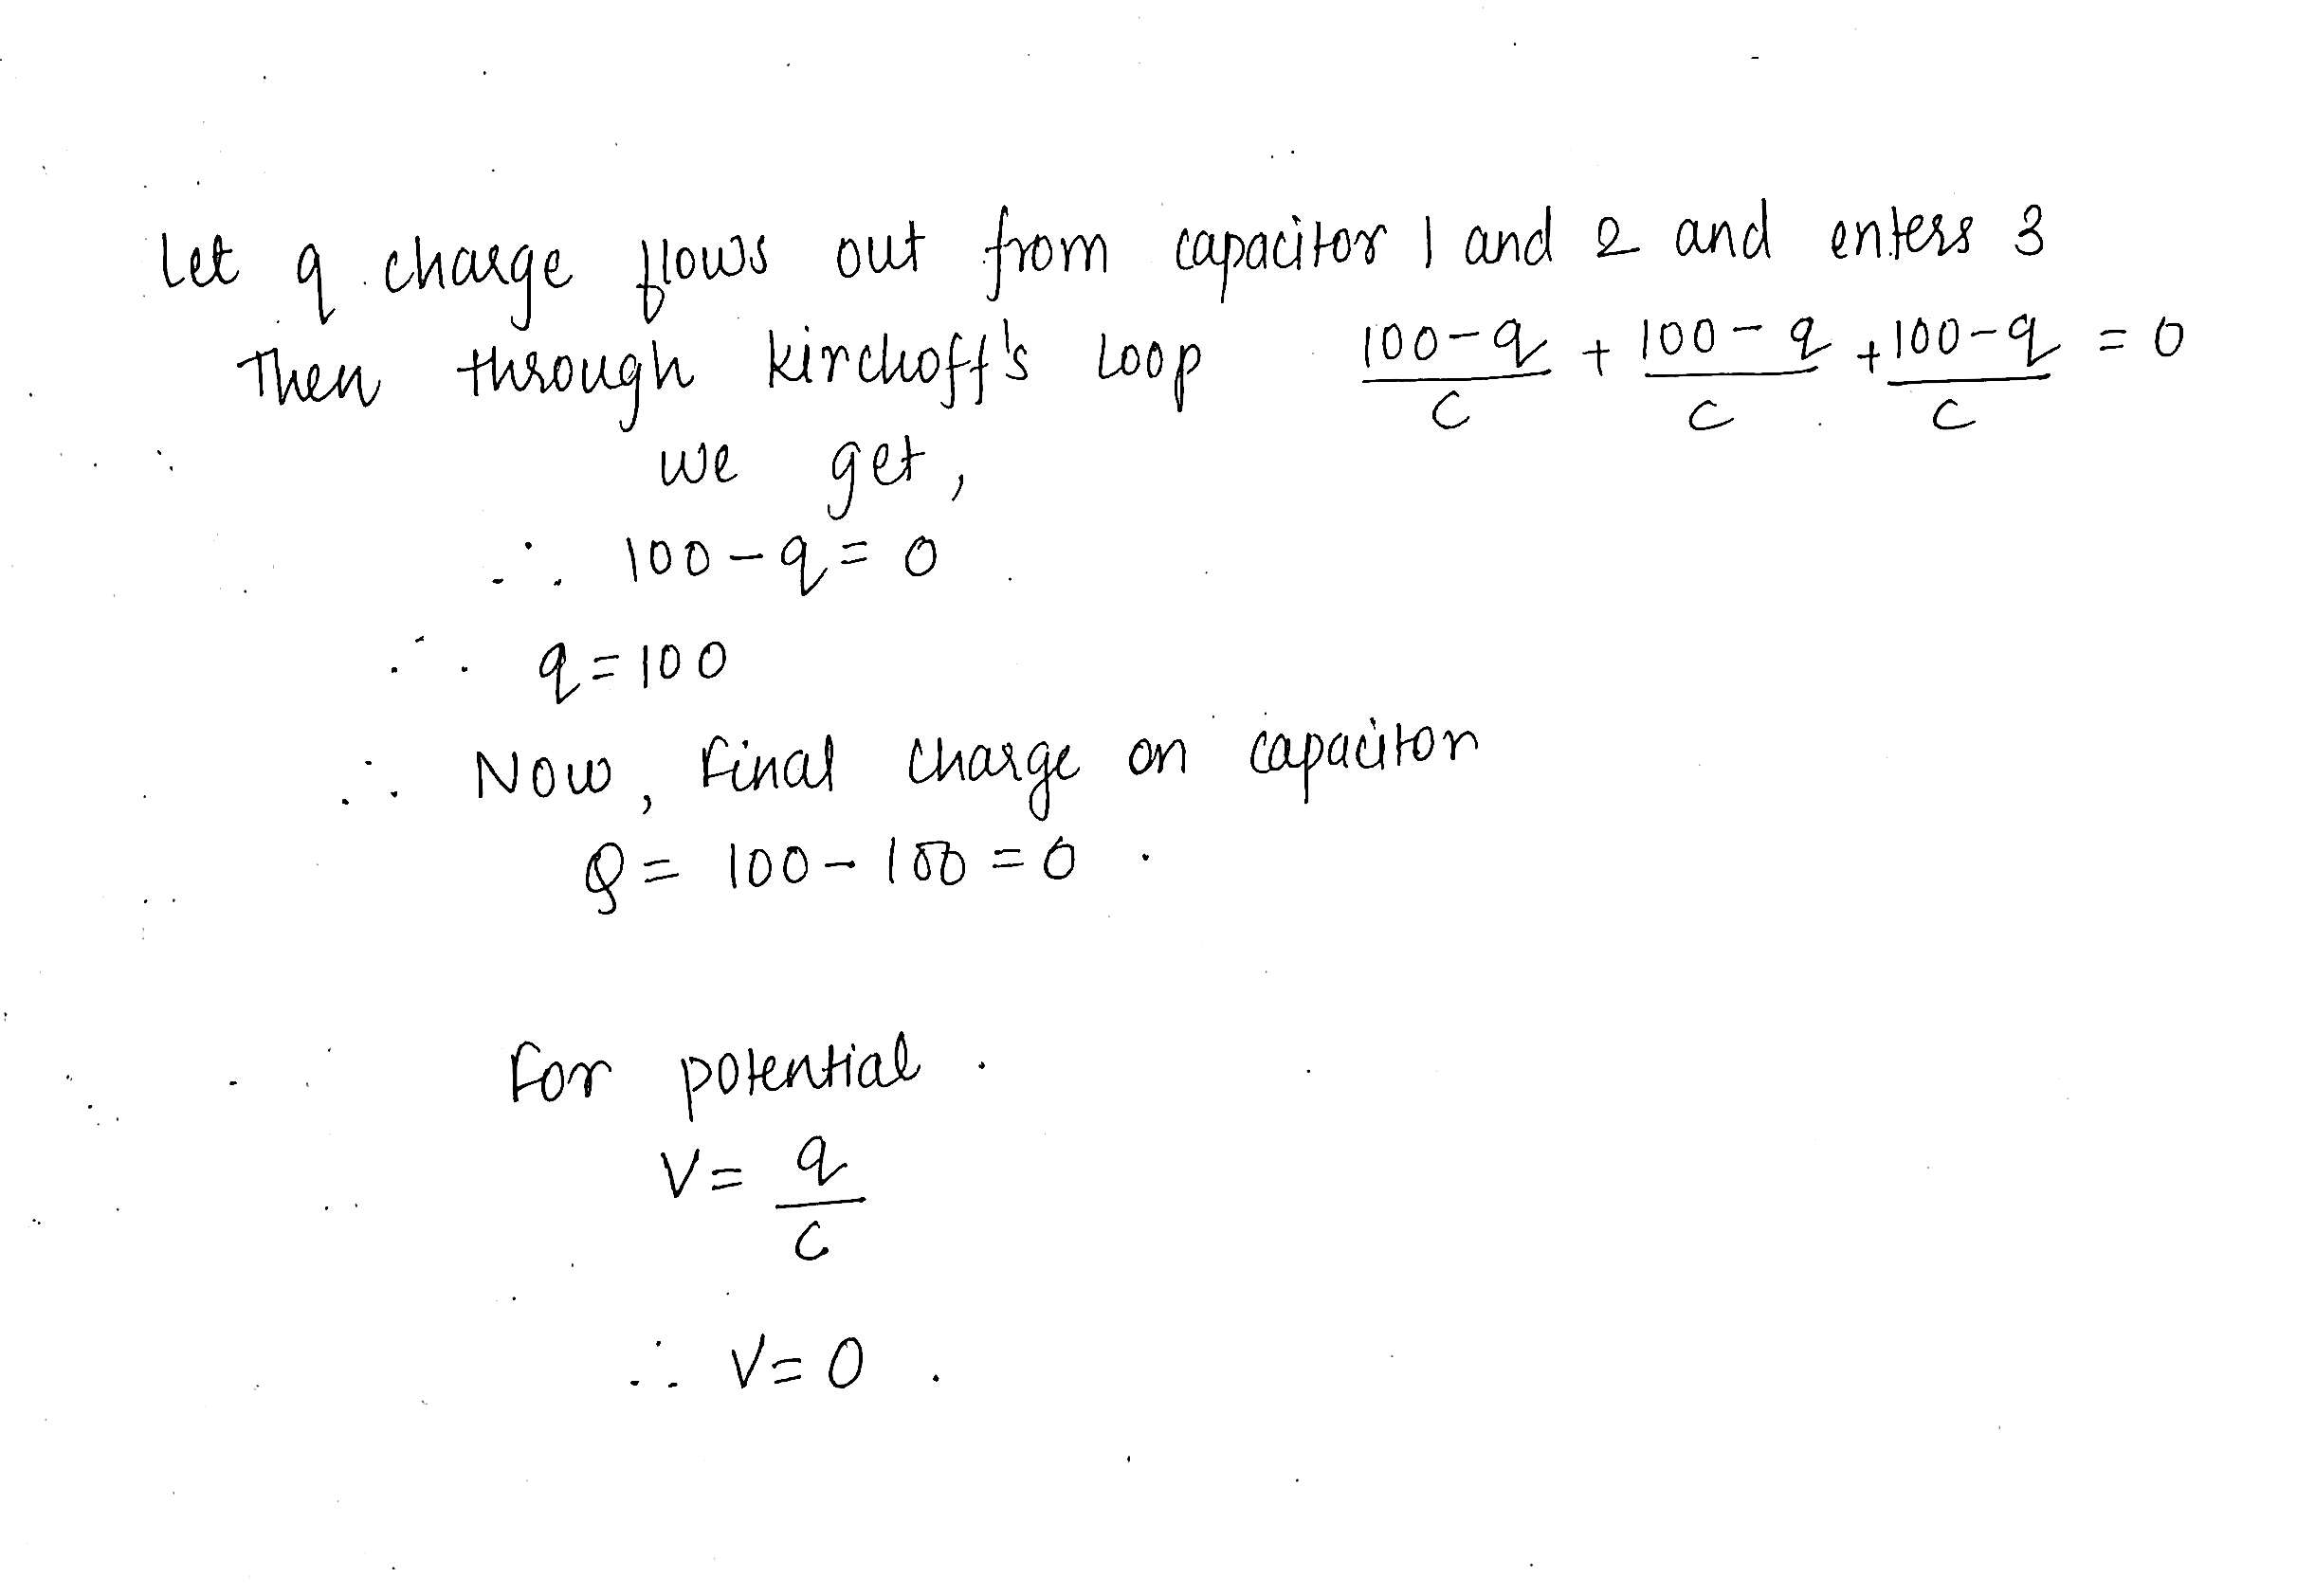 Let q charge flows out from capacitor 1 and 2 and enters 3
Then through kirchoff's Loop (100-q)/C + (100-q)/C + (100-q)/C = 0
we get,
∴ 100-q=0
∴ q=100
∴ Now, Final charge on capacitor
Q = 100-100=0.
For potential.
V= q/C
∴ V=0.